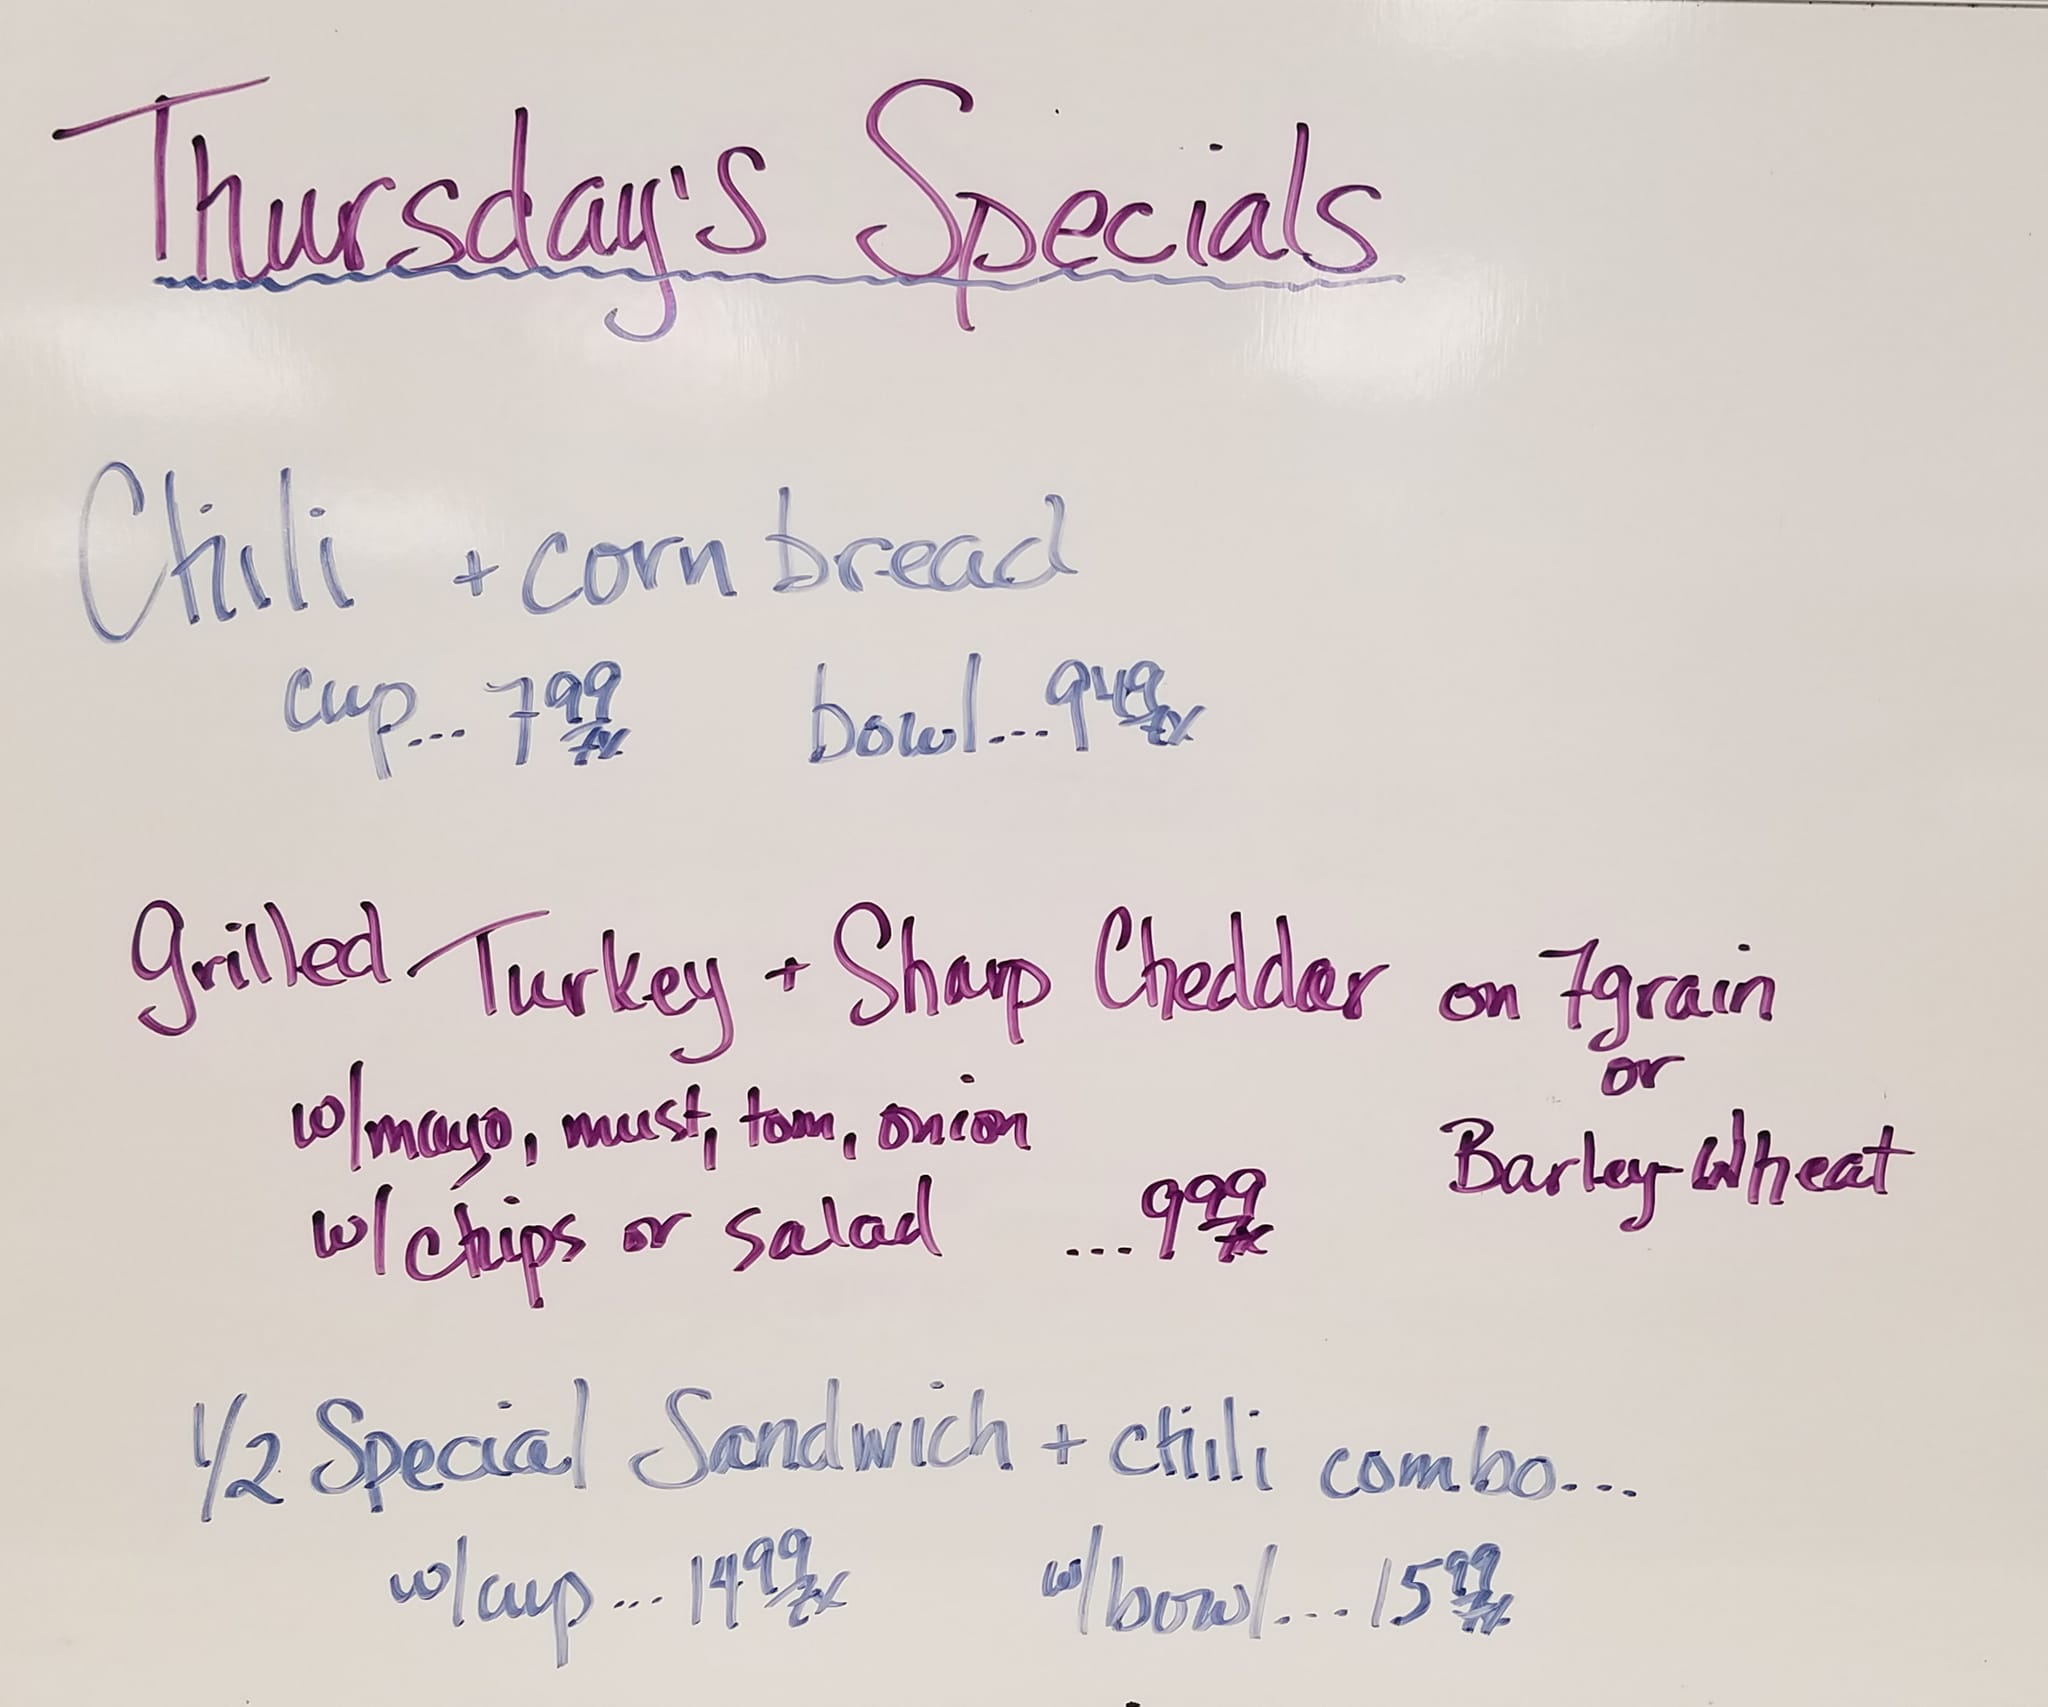 Thursday's Specials
Chili + corn bread
cup... 7.99 /tx bowl... 9.49 /tx
Grilled Turkey + Sharp Cheddar on 7grain
or
Barley-Wheat
w/mayo, must, tom, onion
w/chips or salad ... 9.99 /tx
1/2 Special Sandwich + chili combo...
w/cup... 14.99 /tx w/bowl... 15.99 /tx